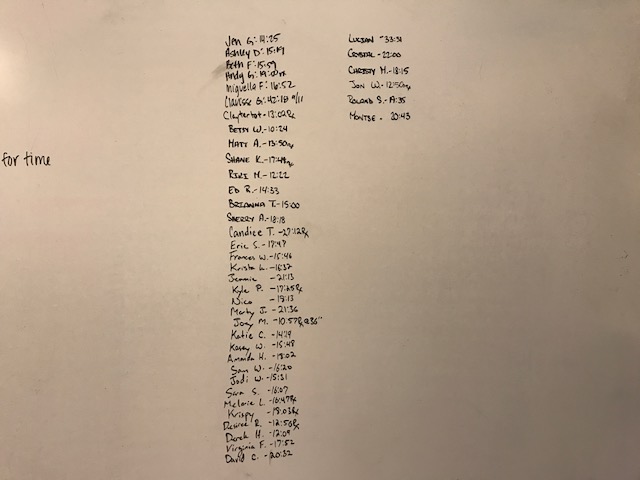 for time
Jen G: 14:25
Ashley D: 15:19
Beth F: 15:59
Andy G: 19:00rx
Miguelle F: 16:52
Clarisse G: 42:18 9/11
Clayterbot - 13:02Rx
Betsy W. - 10:24
Matt A. - 13:50rx
Shane K. - 17:49rx
Riki M. - 12:22
Ed R. - 14:33
Brianna T. - 15:00
Sherry A. - 18:18
Candice T. - 27:12Rx
Eric S. - 17:47
Frances W. - 15:46
Krista L. - 16:37
Jennie - 21:13
Kyle P. - 17:25Rx
Nico - 18:13
Marty J. - 21:36
Joey M. - 10:57Rx@36"
Katie C. - 14:19
Kasey W. - 15:48
Amanda H. - 18:02
Sam W. - 16:20
Jodi W. - 15:31
Sara S. - 16:07
Melanie L. - 16:47Rx
Krispy - 18:03Rx
Desiree R. - 12:56Rx
Derek H. - 12:09
Virginia F. - 17:52
David C. - 20:32
Lucian - 33:31
Crystal - 22:00
Christy M. - 18:15
Jon W. - 12:50rx
Roland S. -
Montse - 20:43